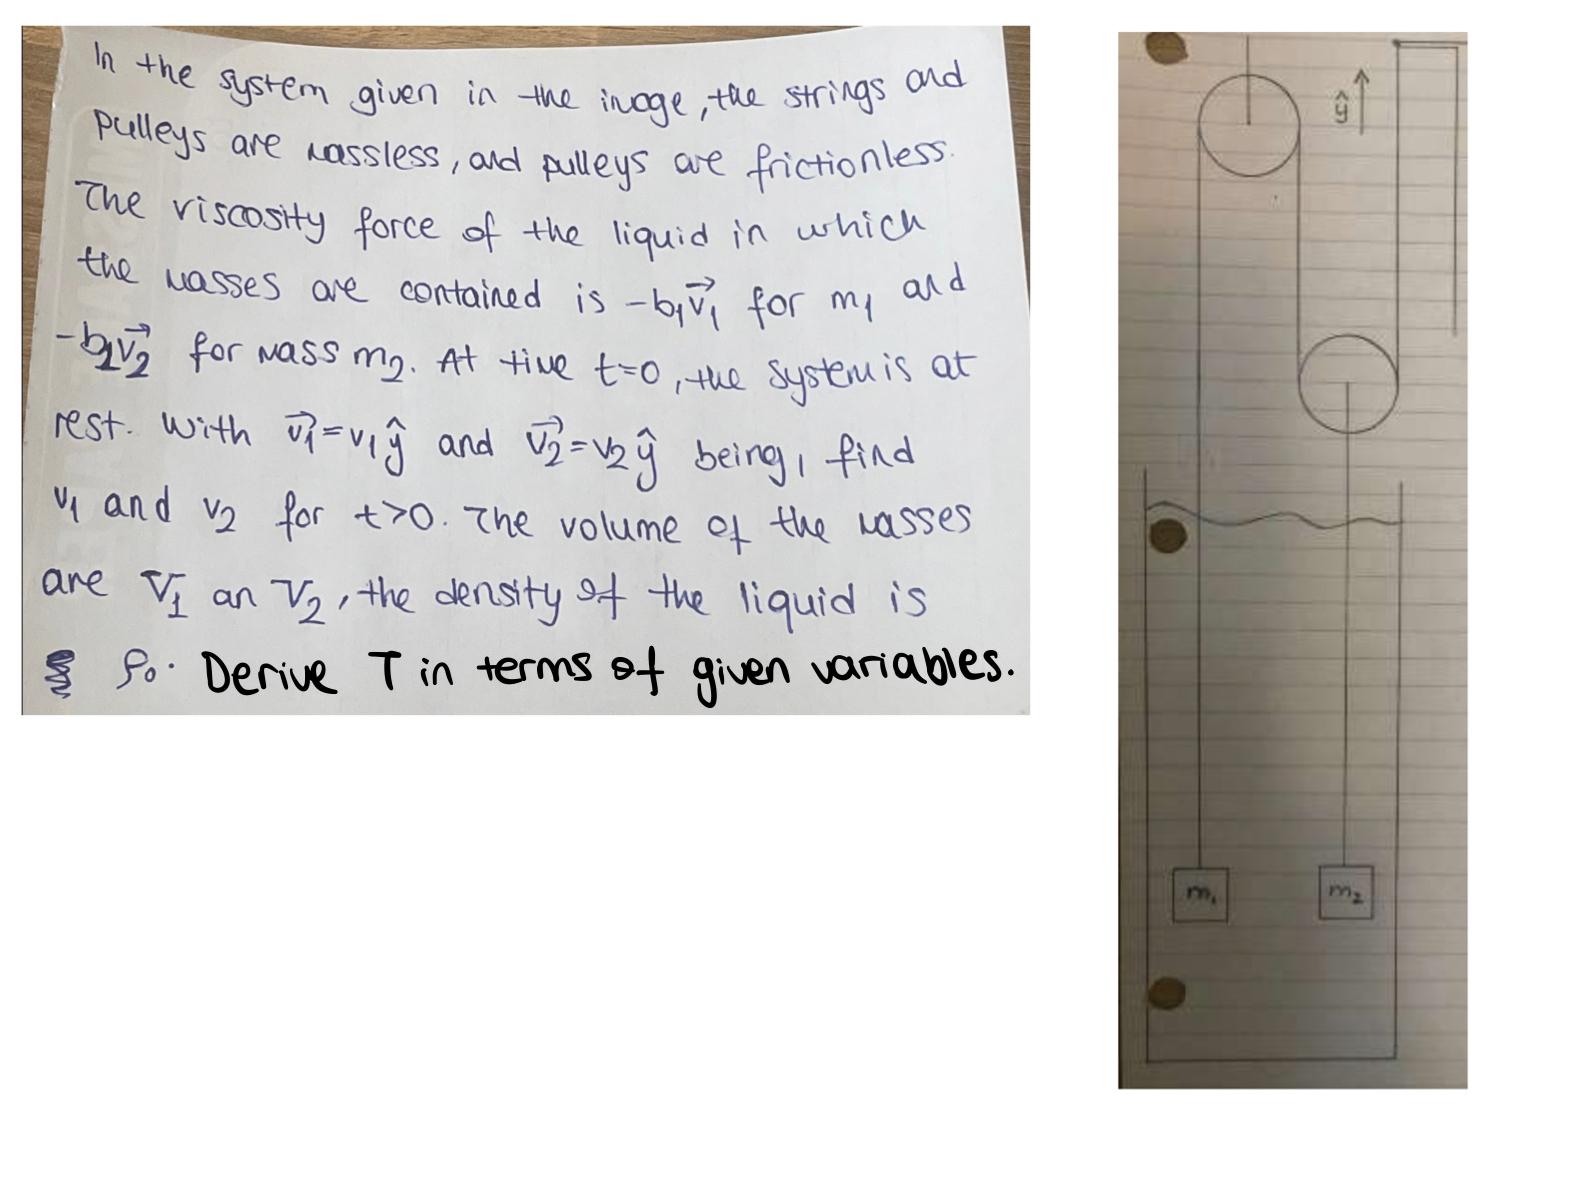 In the system given in the image, the strings and
pulleys are massless, and pulleys are frictionless.
The viscosity force of the liquid in which
the masses are contained is -b₁v₁⃗ for m₁ and
-b₂v₂⃗ for mass m₂. At time t=0, the system is at
rest. With v₁⃗=v₁ŷ and v₂⃗=v₂ŷ being, find
v₁ and v₂ for t>0. The volume of the masses
are V₁ an V₂, the density of the liquid is
ρ₀. Derive T in terms of given variables.
ŷ
m₁
m₂